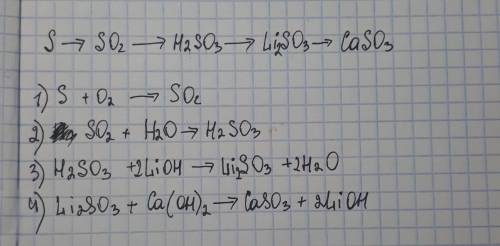 S → SO2 → H2SO3 → Li2SO3 → CaSO3
1) S + O2 → SO2
2) SO2 + H2O → H2SO3
3) H2SO3 + 2LiOH → Li2SO3 + 2H2O
4) Li2SO3 + Ca(OH)2 → CaSO3 + 2LiOH